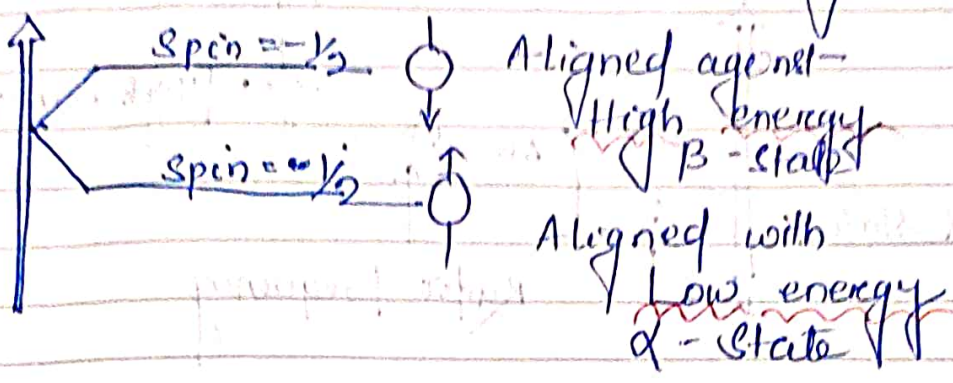 Spin = -1/2
Aligned against
High energy
β - State
Spin = -1/2
Aligned with
Low energy
α - State